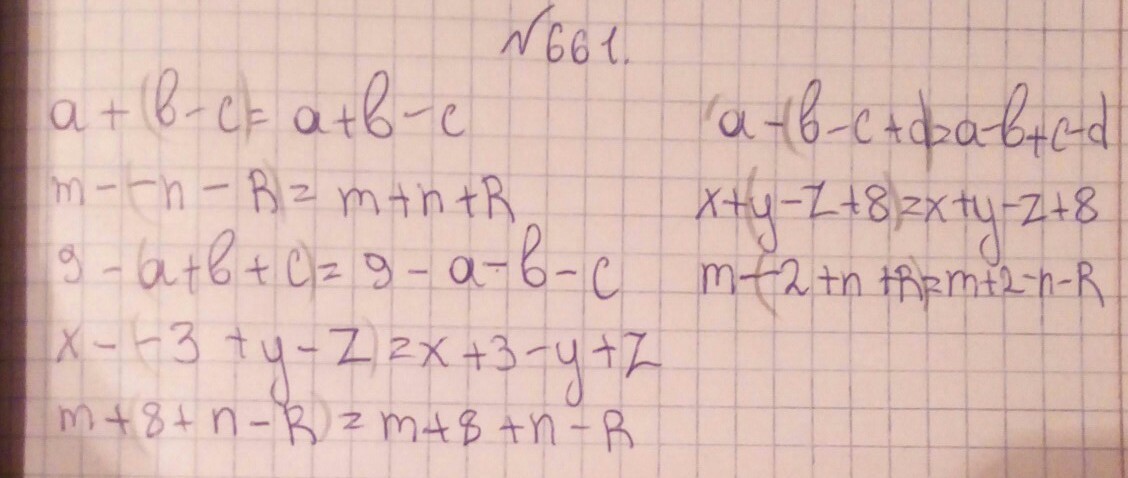 №661.
a + (b - c) = a + b - c
m - (-n - k) = m + n + k
9 - (a + b + c) = 9 - a - b - c
x - (-3 + y - z) = x + 3 - y + z
m + (8 + n - k) = m + 8 + n - k
a - (b - c + d) = a - b + c - d
x + (y - z + 8) = x + y - z + 8
m - (-2 + n + k) = m + 2 - n - k